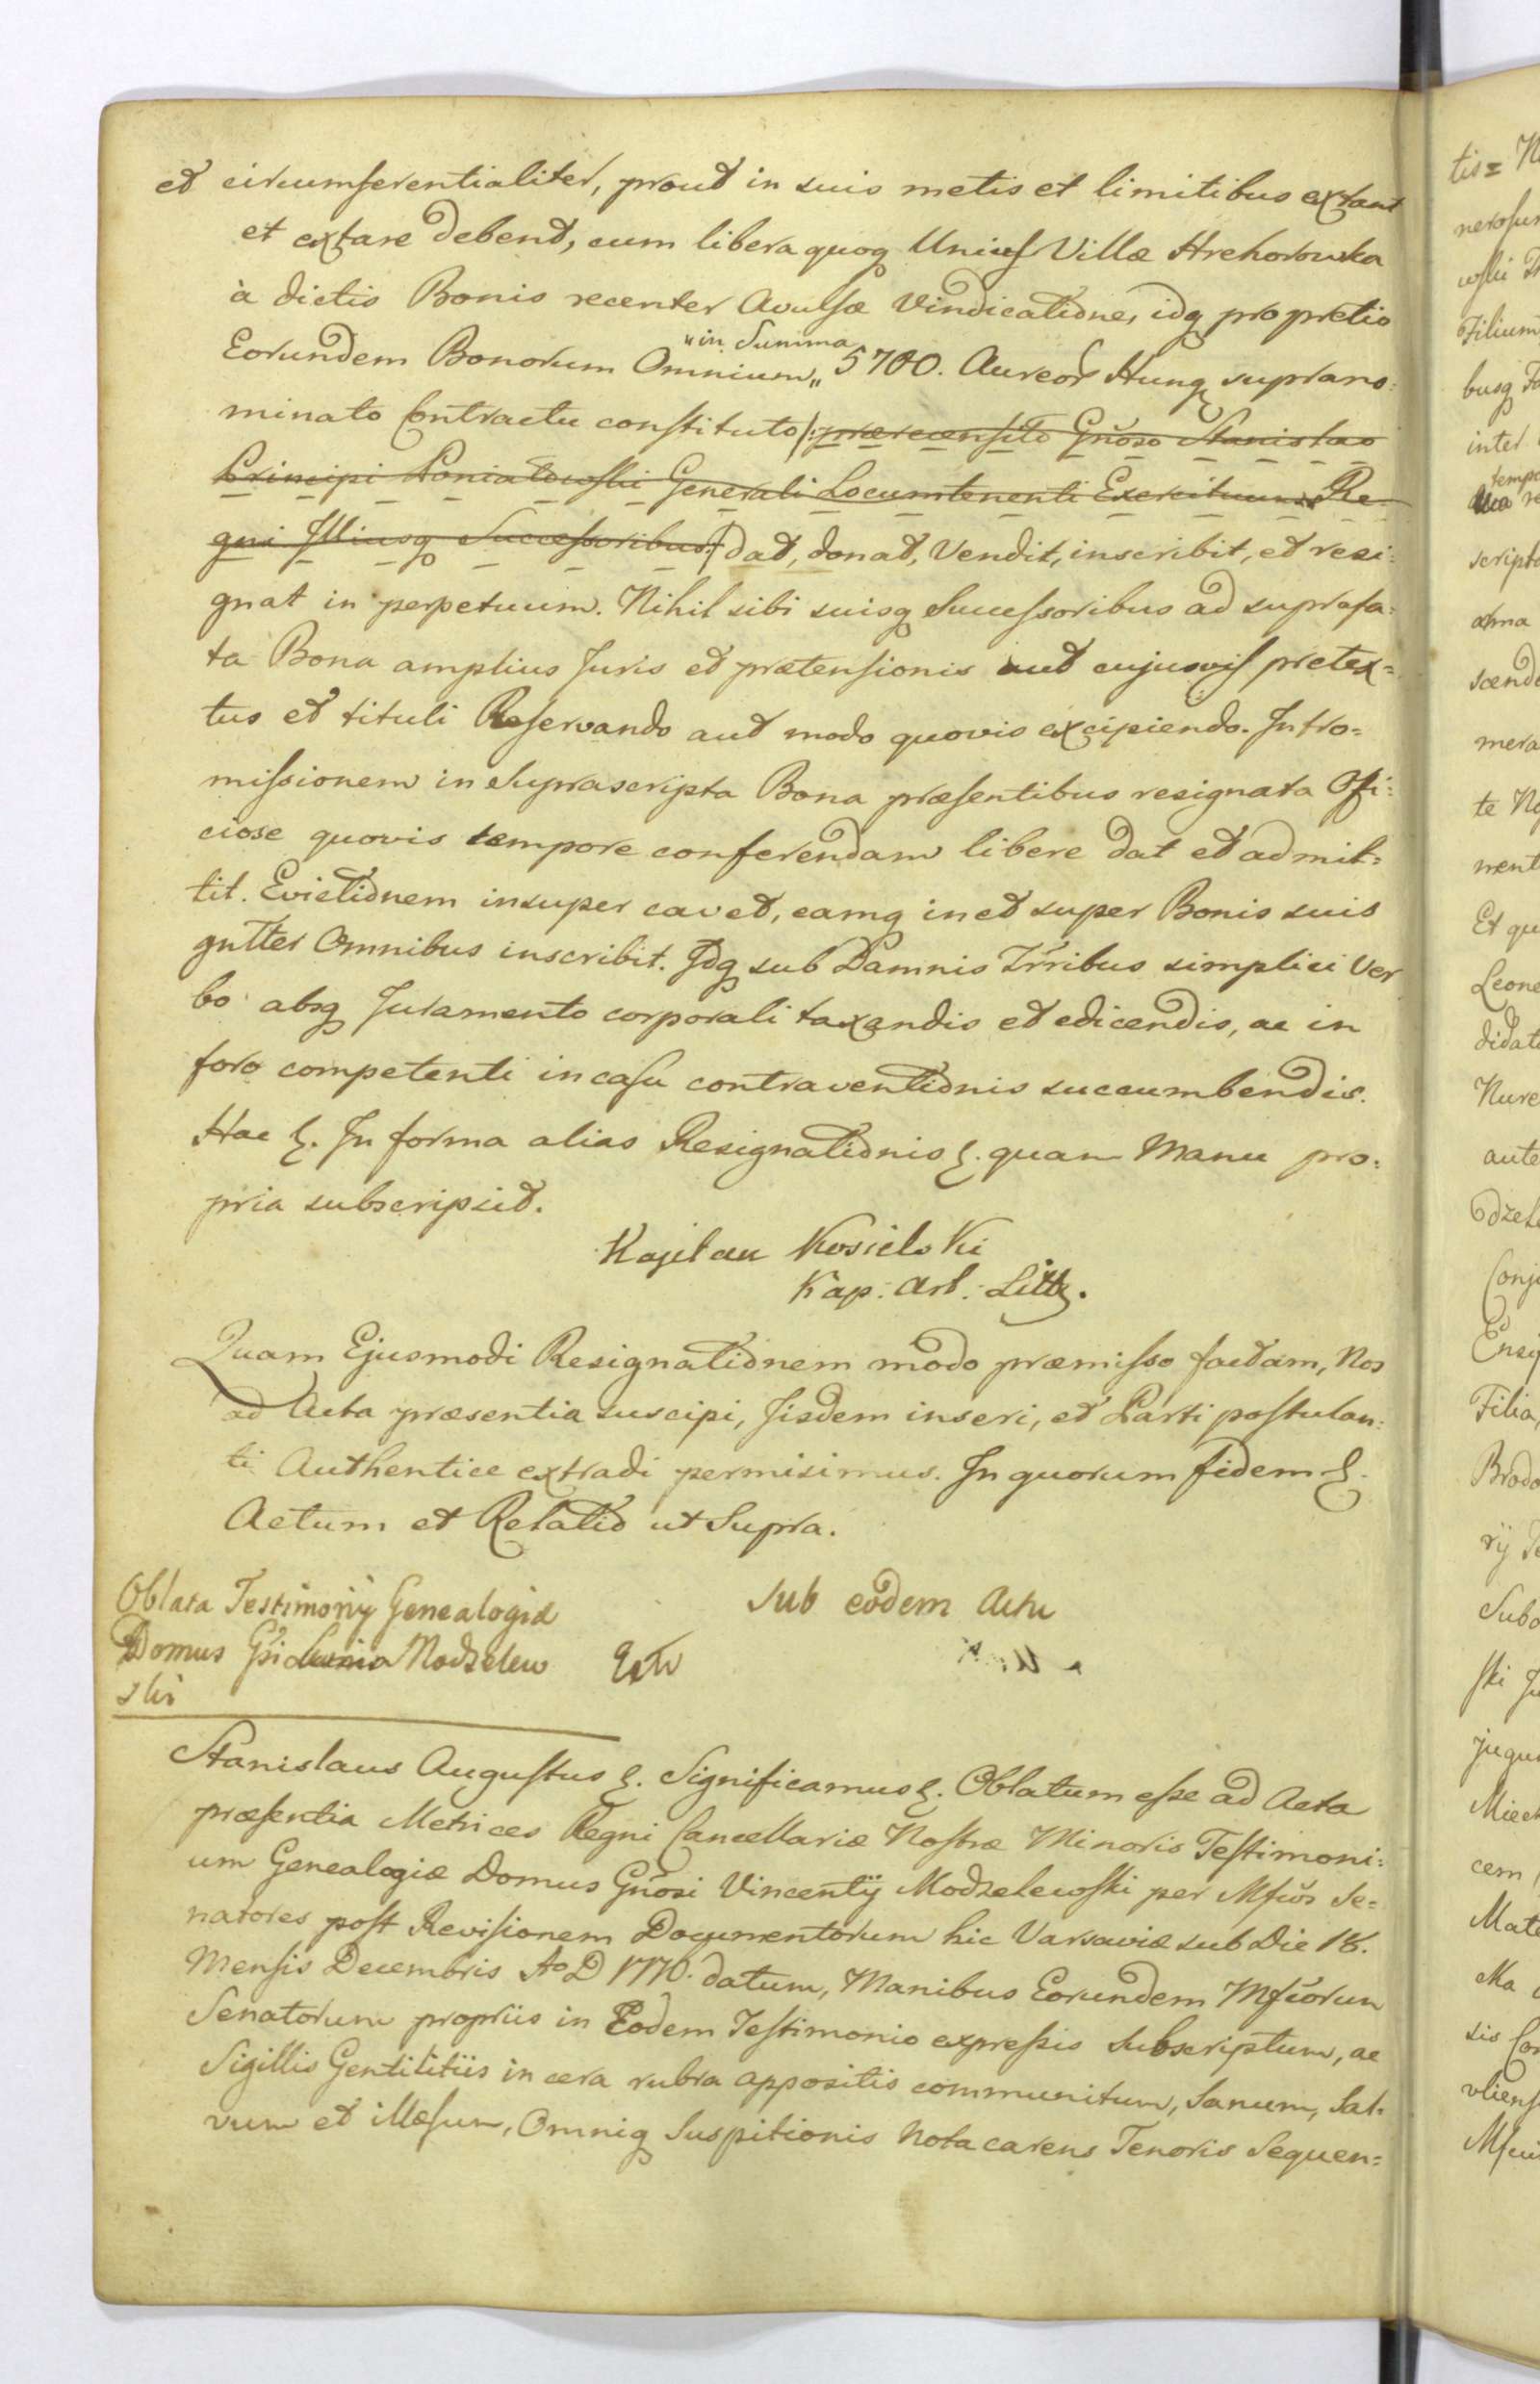 et circumferentialiter, prout in suis metis et limitibus extant
et extare debent, cum libera quoq Unius Villæ Hrehorowka
à dictis Bonis recenter Avulsæ Vindicatione, idq pro pretio
Eorundem Bonorum Omnium „in Summa„ 5700. Aureor Hung suprano=
minato Contractu constituto /: præcensito Gnoso Stanislao
Principi Poniatowski Generali Locumtenenti Exercituum Re=
gni Illiusq Successoribus :/ dat, donat, Vendit, inscribit, et resi=
gnat in perpetuum. Nihil sibi suisq Successoribus ad suprafa=
ta Bona amplius Juris et prætensionis aut cujusvis pretex=
tus et tituli Reservando aut modo quovis excipiendo. Intro=
missionem in Suprascripta Bona præsentibus resignata Offi=
ciose quovis tempore conferendam libere dat et admit=
tit. Evictionem insuper cavet, eamq in et super Bonis suis
gntter Omnibus inscribit. Idq sub Damnis Trribus simplici Ver
bo absq Juramento corporali taxandis et edicendis, ac in
foro competenti in casu contraventionis succumbendis.
Hac &. In forma alias Resignationis &. quam Manu pro=
pria subscripsit.
Kajetan Kosielski
Kap: Art: Litt.
Quam Ejusmodi Resignationem modo præmisso factam, Nos
ad Acta præsentia suscipi, Iisdem inseri, et Parti postulan=
ti Authentice extradi permisimus. In quorum fidem &.
Actum et Relatio ut Supra.
Oblata Testimonij Genealogiæ sub eodem Actu
Domus Gsi Modzelew
ski
Stanislaus Augustus &. Significamus &. Oblatum esse ad Acta
præsentia Metrices Regni Cancellariæ Nostræ Minoris Testimoni=
um Genealogiæ Domus Gnosi Vincentij Modzelewski per Mfcos Se=
natores post Revisionem Documentorum hic Varsaviæ sub Die 18.
Mensis Decembris Ao D 1770. datum, Manibus Eorundem Mfcorum
Senatorum propriis in Eodem Testimonio expressis subscriptum, ac
Sigillis Gentilitiis in cera rubra appositis communitum, Sanum, Sal=
vum et illæsum, Omniq Suspitionis Nota carens Tenoris Sequen=